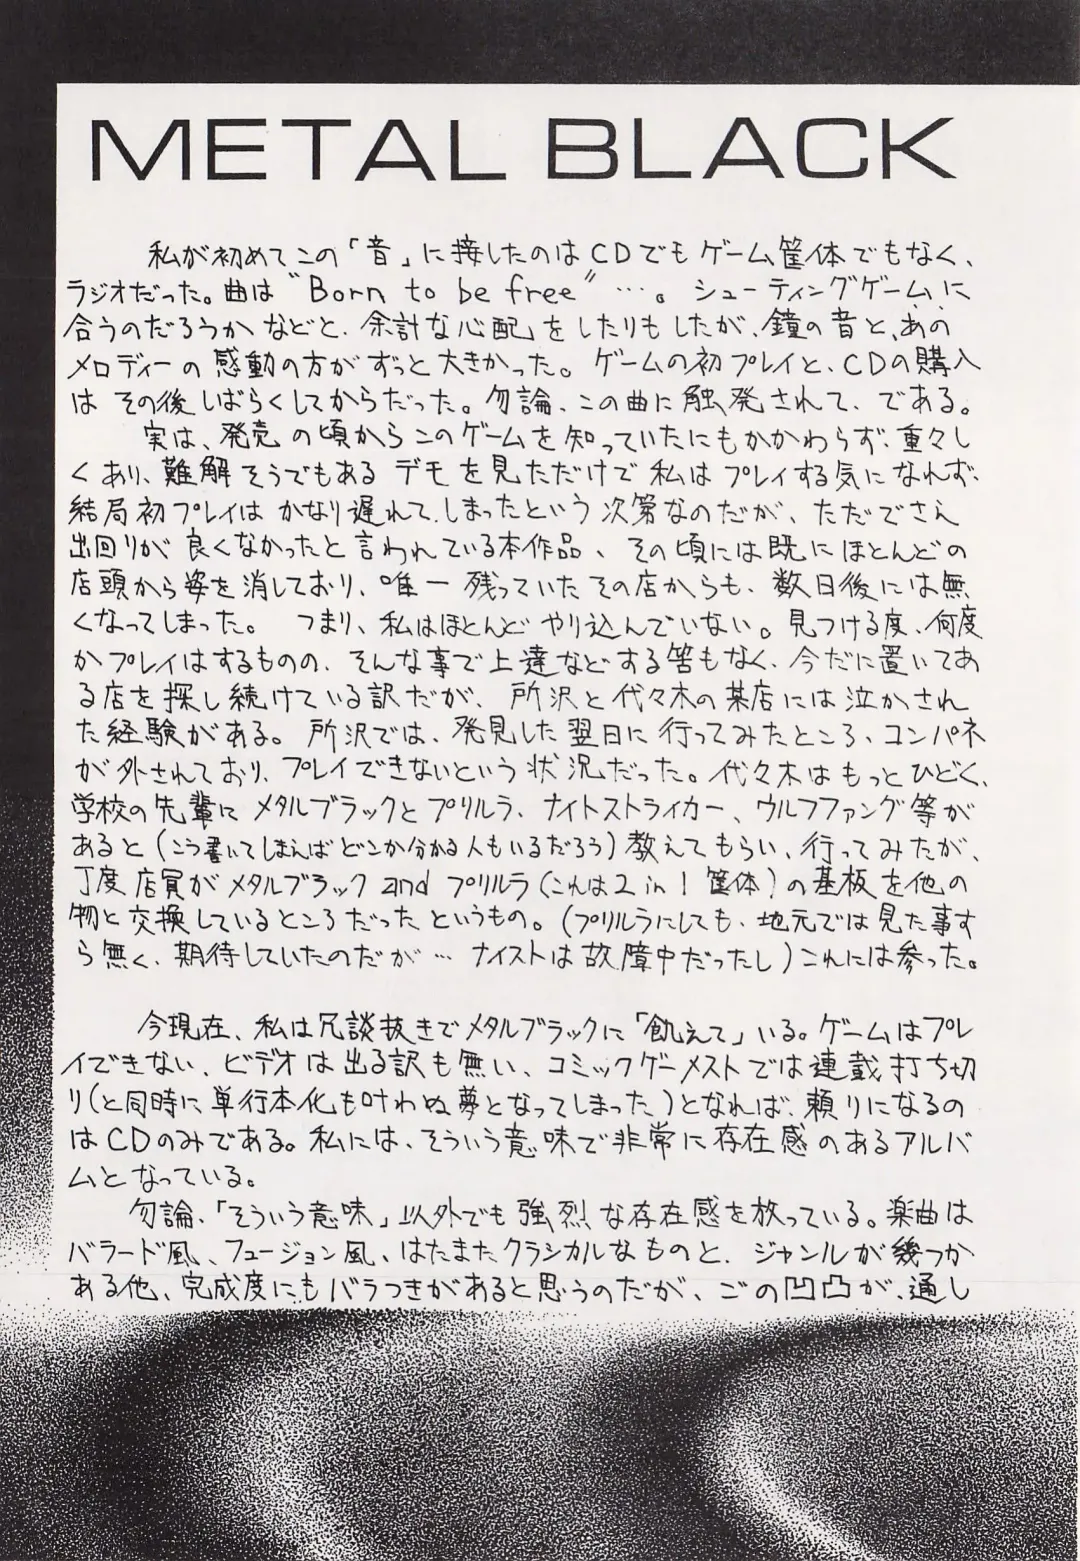 METAL BLACK
私が初めてこの「音」に接したのはCDでもゲーム筐体でもなく、
ラジオだった。曲は"Born to be free"…。シューティングゲームに
合うのだろうかなどと、余計な心配」をしたりもしたが、鐘の音と、あの
メロディーの感動の方がずっと大きかった。ゲームの初プレイと、CDの購入
はその後しばらくしてからだった。勿論、この曲に触発されて、である。
実は、発売の頃からこのゲームを知っていたにもかかわらず、重々し
くあり、難解そうでもあるデモを見ただけで私はプレイする気になれず、
結局初プレイはかなり遅れてしまったという次第なのだが、ただでさえ
出回りが良くなかったと言われている本作品、その頃には既にほとんどの
店頭から姿を消しており、唯一残っていたその店からも、数日後には無
くなってしまった。 つまり、私はほとんどやり込んでいない。見つける度、何度
かプレイはするものの、そんな事で上達などする筈もなく、今だに置いてあ
る店を探し続けている訳だが、所沢と代々木の某店には泣かされ
た経験がある。所沢では、発見した翌日に行ってみたところ、コンパネ
が外されており、プレイできないという状況だった。代々木はもっとひどく、
学校の先輩にメタルブラックとプリルラ、ナイトストライカー、ウルフファング等が
あると(こう書いてしまえばどこか分かる人もいるだろう)教えてもらい、行ってみたが、
丁度店員がメタルブラックandプリルラ(これは2in1筐体)の基板を他の
物と交換しているところだったというもの。(プリルラにしても、地元では見た事す
ら無く、期待していたのだが… ナイストは故障中だったし)これには参った。
今現在、私は冗談抜きでメタルブラックに「飢えて」いる。ゲームはプレ
イできない、ビデオは出る訳も無い、コミックゲーメストでは連載打ち切
り(と同時に単行本化も叶わぬ夢となってしまった)となれば、頼りになるの
はCDのみである。私には、そういう意味で非常に存在感のあるアルバ
ムとなっている。
勿論、「そういう意味」以外でも強烈な存在感を放っている。楽曲は
バラード風、フュージョン風、はたまたクラシカルなものと、ジャンルが幾つか
ある他、完成度にもバラつきがあると思うのだが、この凹凸が、通し